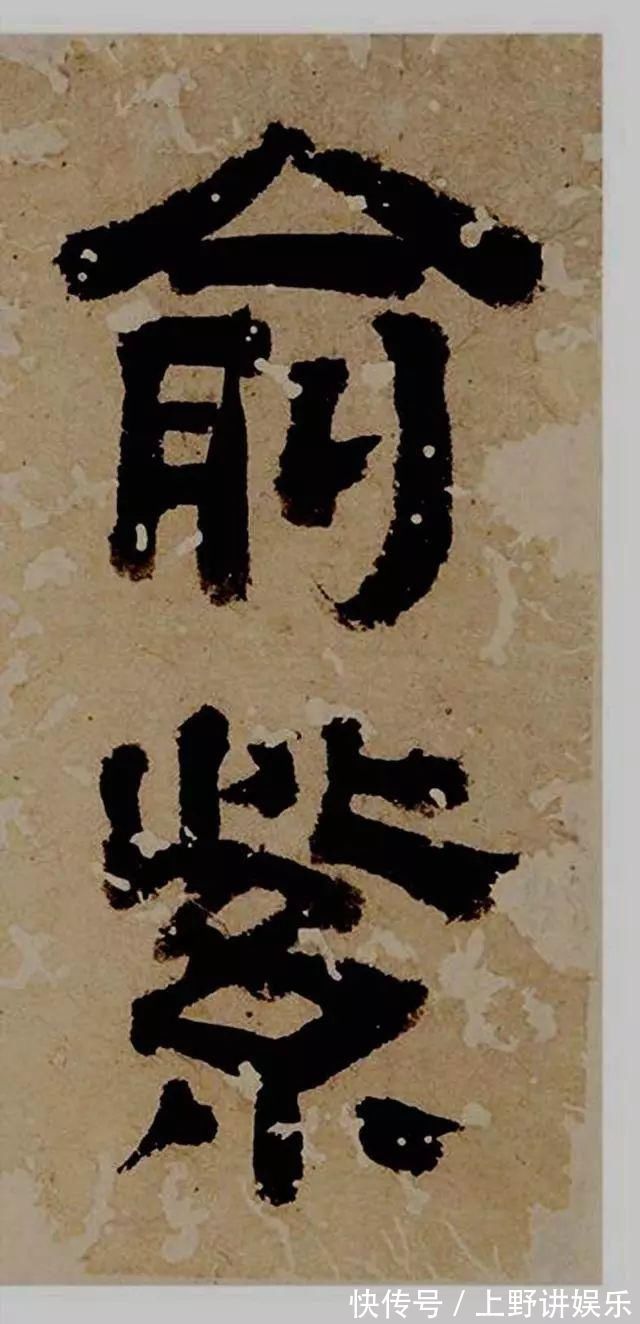 俞紫
快传号 / 上野讲娱乐